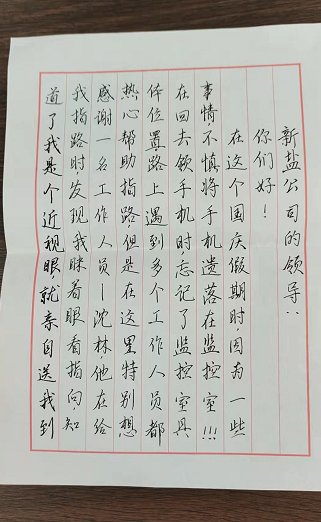 新盐公司的领导：
你们好！
在这个国庆假期时,因为一些
事情不慎将手机遗落在监控室!!!
在回去领手机时,忘记了监控室具
体位置路上遇到多个工作人员都
热心帮助指路,但是在这里特别想
感谢一名工作人员—沈林,他在给
我指路时发现我眯着眼看指向,知
道了我是个近视眼,就亲自送我到